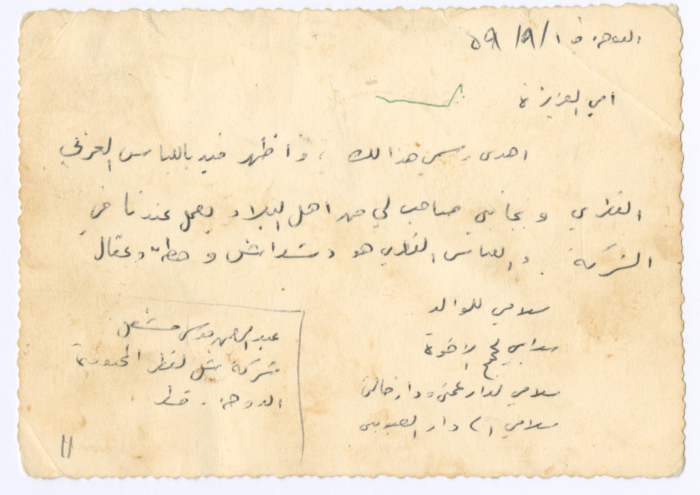 الدوحة في ١/٩/٥٩
امي العزيزة
اهدي رسمي هذا لك ، واظهر فيه باللباس العربي
القطري وبجانبي صاحب لي من اهل البلاد يعمل عندنا في
الشركة . واللباس القطري هو دشداش وحطة وعقال
سلامي للوالد
سلامي لجميع الاخوة
سلامي لدار عمتي ودار خالتي
سلامي الى دار
عبد الرحمن موسى مشعل
شركة شل لقطر المحدودة
الدوحة . قطر
١١